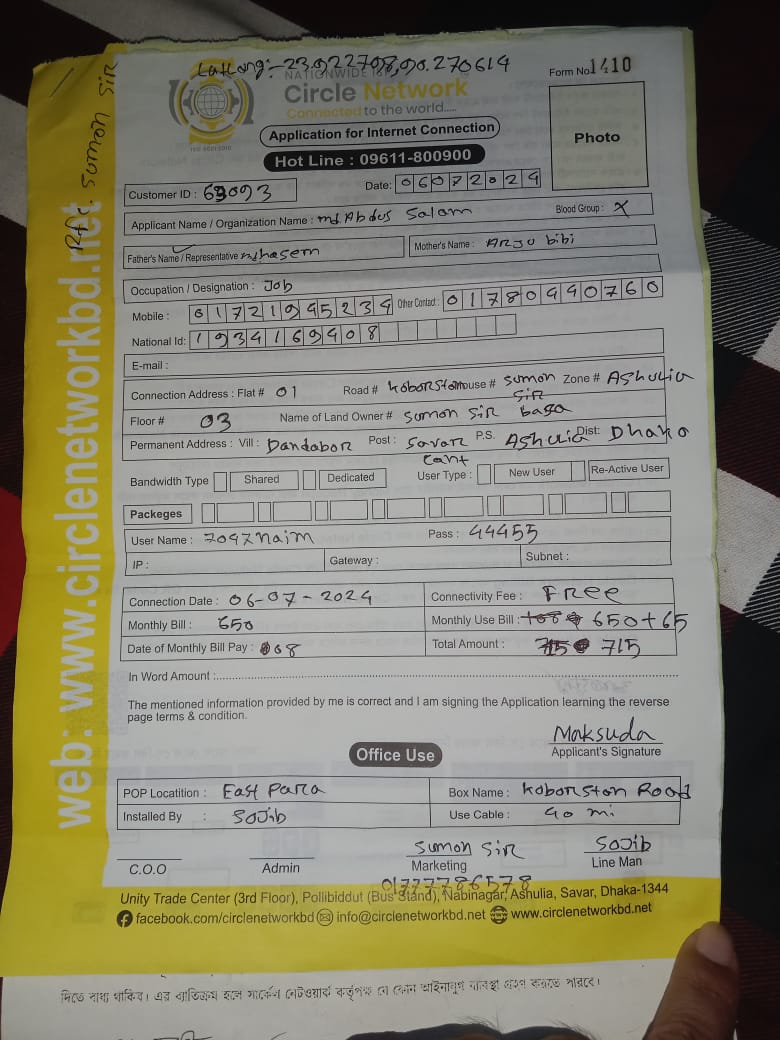 Lat Long:- 23.922708,90.270614
NATIONWIDE ISP
Form No 1410
Circle Network
Connected to the world.....
ISO 9001:2015
Application for Internet Connection
Photo
Hot Line : 09611-800900
Ref: Sumon Sir
web: www.circlenetworkbd.net
Customer ID : 63093 Date: 06072024
Applicant Name / Organization Name : md Abdus Salam Blood Group : X
Father's Name / Representative : md hasem Mother's Name : Arju bibi
Occupation / Designation : Job
Mobile : 01721945234 Other Contact : 01780440760
National Id: 1934169408
E-mail :
Connection Address : Flat # 01 Road # koborston House # Sumon Sir Zone # Ashulia
Floor # 03 Name of Land Owner # Sumon Sir basa
Permanent Address : Vill : Dandabor Post : Savar Cant P.S. Ashulia Dist: Dhaka
Bandwidth Type Shared Dedicated User Type : New User Re-Active User
Packeges
User Name : 7097naim Pass : 44455
IP : Gateway : Subnet :
Connection Date : 06-07-2024 Connectivity Fee : Free
Monthly Bill : 650 Monthly Use Bill : 650+65
Date of Monthly Bill Pay : 08 Total Amount : 715
In Word Amount :
The mentioned information provided by me is correct and I am signing the Application learning the reverse
page terms & condition.
Maksuda
Applicant's Signature
Office Use
POP Locatition : East Para Box Name : Koborston Road
Installed By : Sojib Use Cable : 40 mi
Sumon Sir Sojib
C.O.O Admin Marketing Line Man
01777786578
Unity Trade Center (3rd Floor), Pollibiddut (Bus Stand), Nabinagar, Ashulia, Savar, Dhaka-1344
facebook.com/circlenetworkbd info@circlenetworkbd.net www.circlenetworkbd.net
দিতে বাধ্য থাকিব। এর ব্যতিক্রম হলে সার্কেল নেটওয়ার্ক কর্তৃপক্ষ যে কোন আইনানুগ ব্যবস্থা গ্রহণ করতে পারবে।